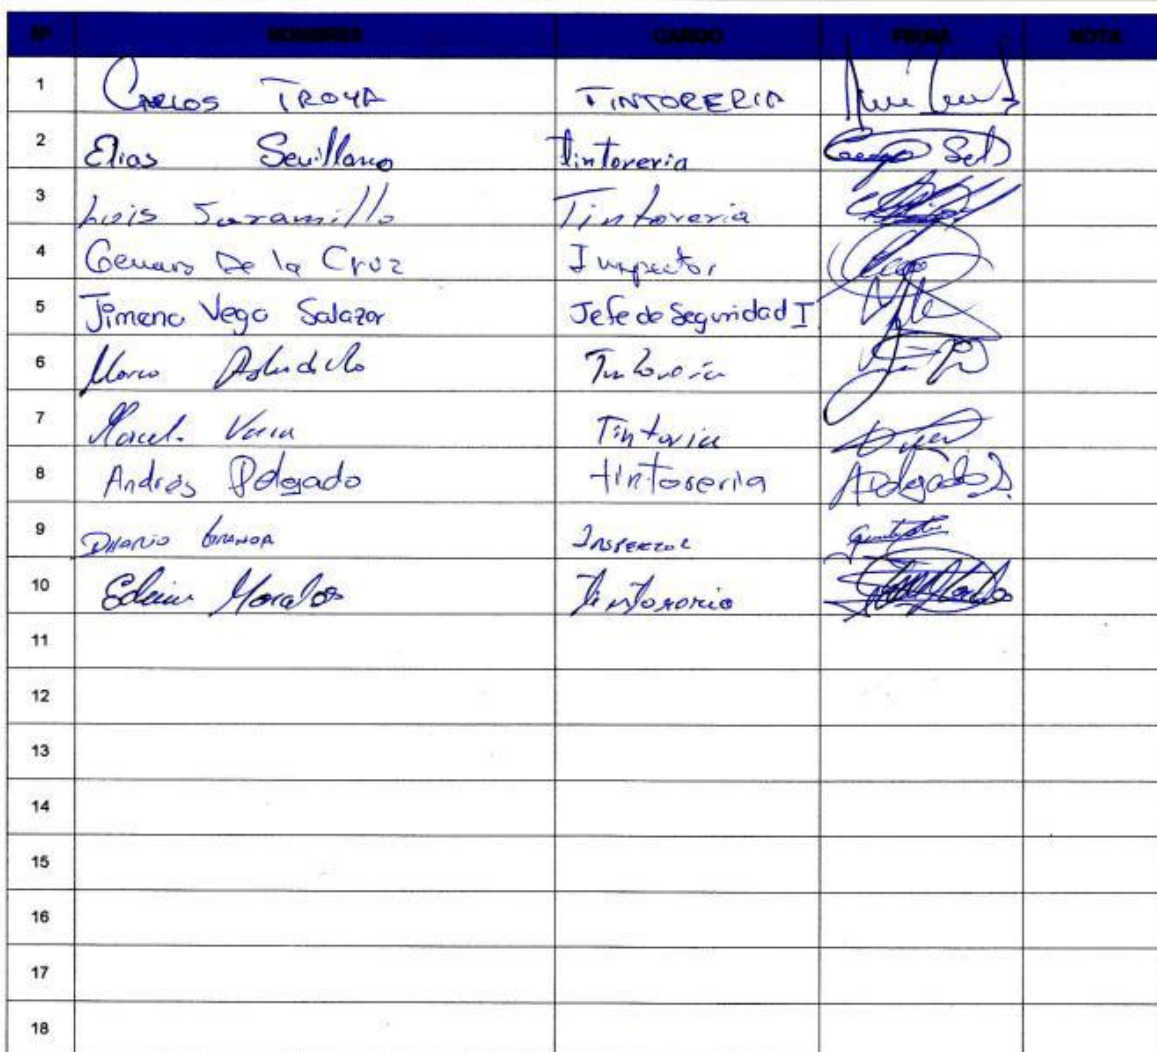 Nº NOMBRES CARGO FIRMA NOTA
1 CARLOS TROYA TINTORERIA
2 Elias Sevillano tintoreria
3 Luis Jaramillo Tintoreria
4 Genaro De la Cruz Inspector
5 Jimena Vega Salazar Jefe de Seguridad I
6 Marco Astudillo Tintoreria
7 Marcel. Tintoria
8 Andrés Delgado tintoreria ADelgado D.
9 INSPECTOR
10 Morales tintoreria
11
12
13
14
15
16
17
18